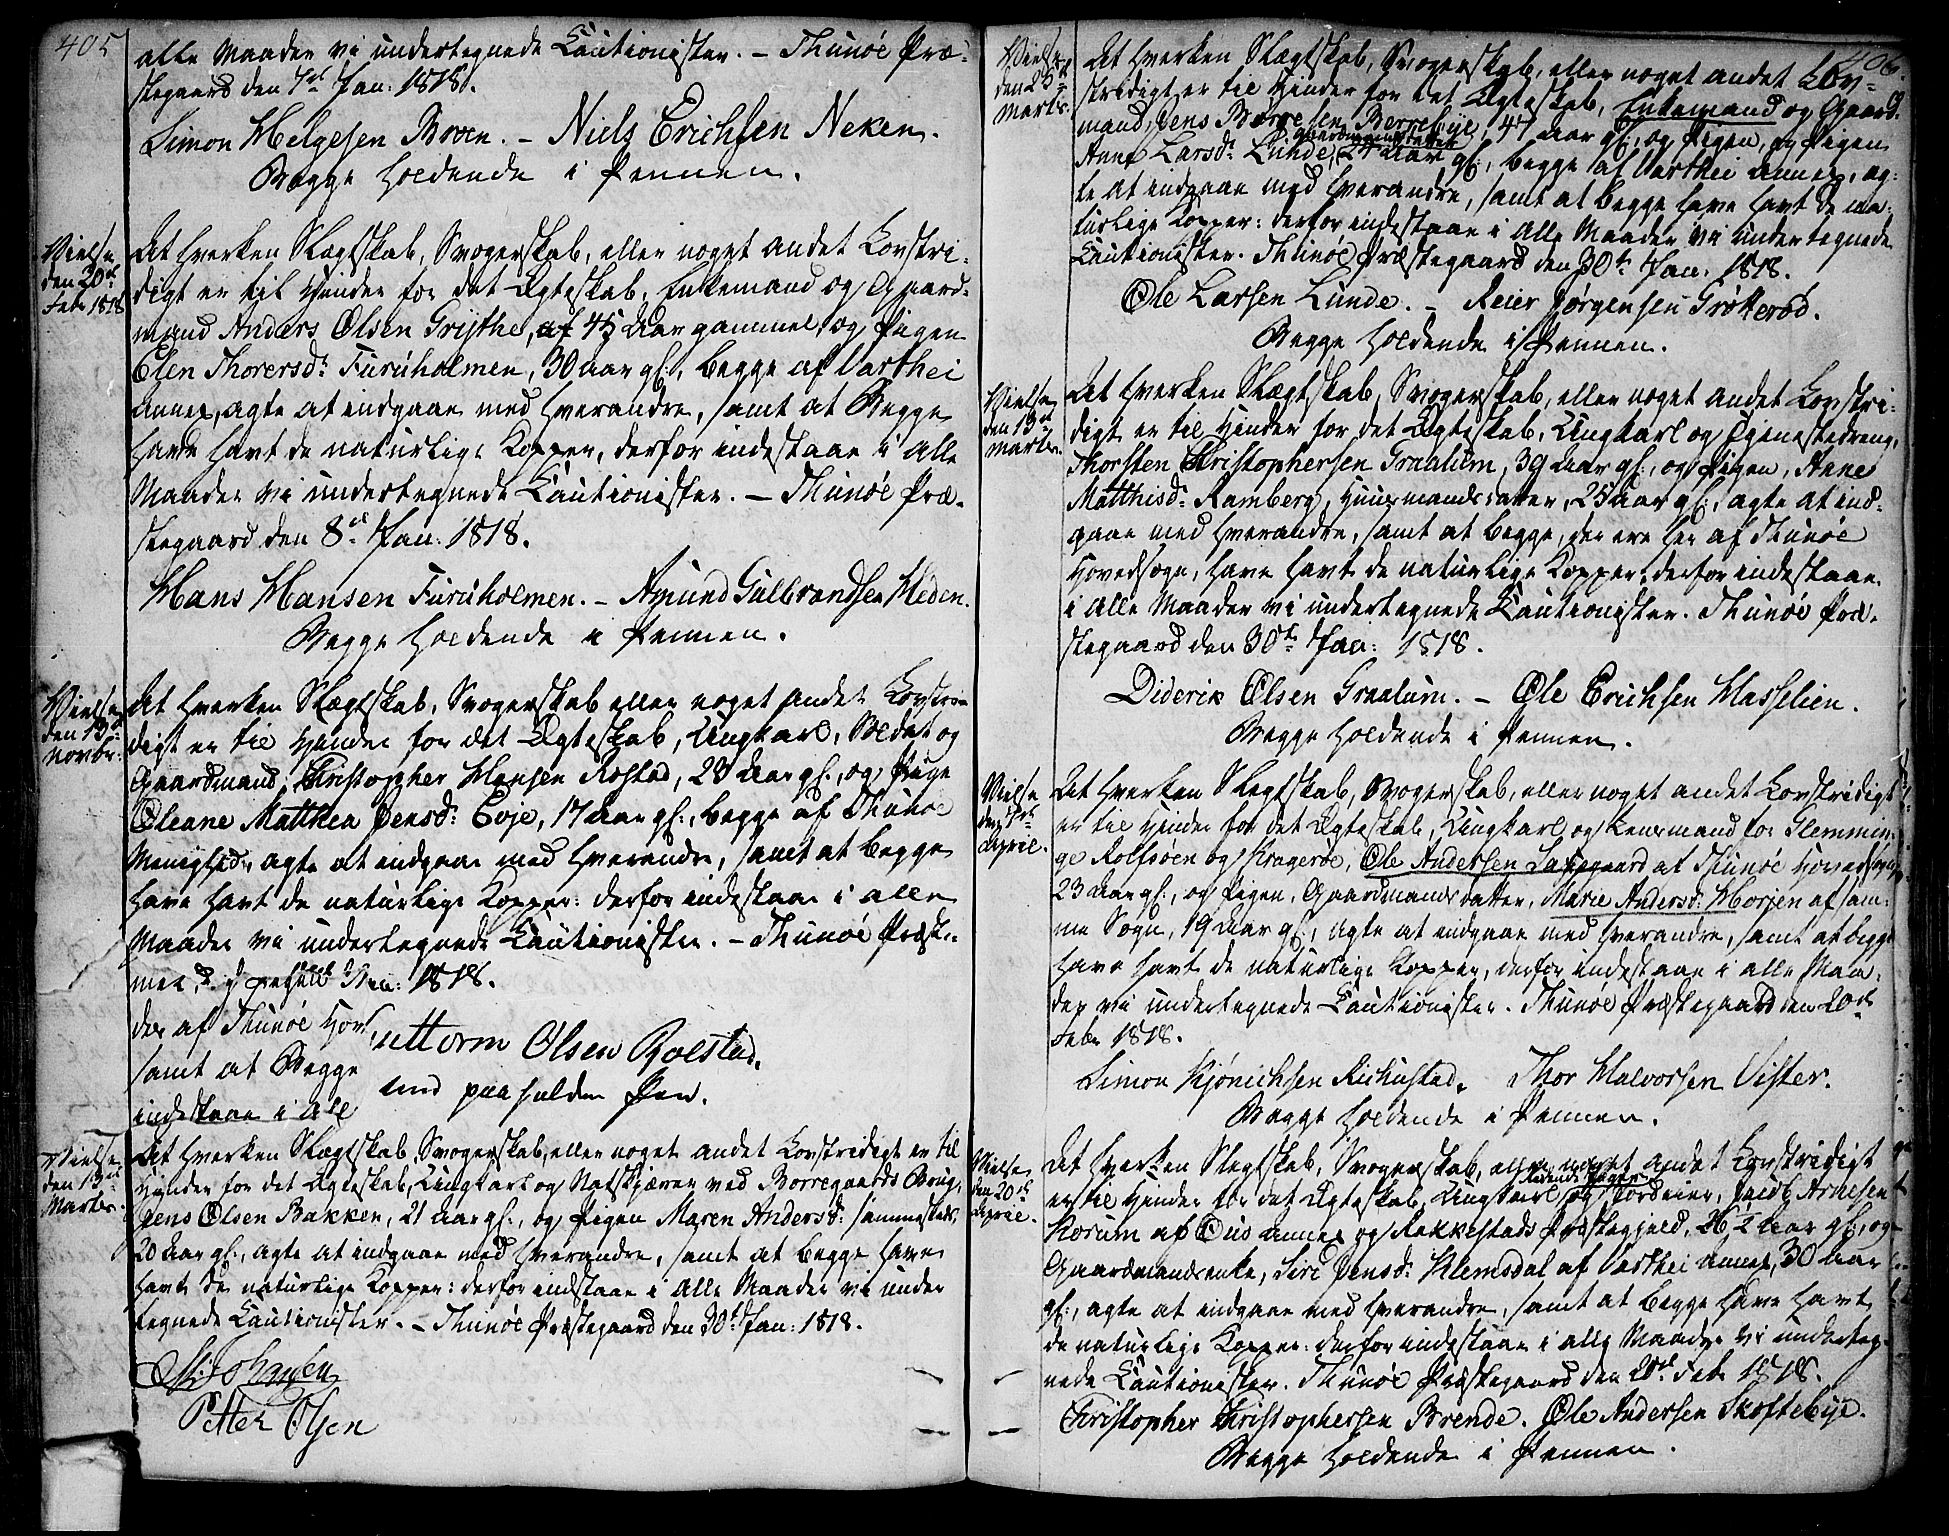 405
alle Maader vi undertegnede Cautionister. – Thunöe Præ-
stegaard den 7de Jan: 1818.
Simon Helgesen Broen. – Niels Erichsen Neken.
Begge holdende i Pennen.
Vielse
den 20de
Febr 1818
At hverken Slægtskab, Svogerskab, eller noget andet Lovstri-
digt er til Hinder for det Ægteskab, Enkemand og Gaard-
mand Anders Olsen Grijthe, af 45 Aar gammel og Pigen
Elen Thorersd: Furuholmen, 30 Aar gl:, begge af Varthei
Annex, agte at indgaae med hverandre, samt at Begge
have havt de naturlige Kopper, derfor indestaae i alle
Maader vi undertegnede Cautionister. – Thunöe Præ-
stegaard den 8de Jan: 1818.
Hans Hansen Furuholmen. – Amund Gulbrandsen Heden.
Begge holdende i Pennen.
Vielse
den 13de
Novbr:
At hverken Slægtskab, Svogerskab eller noget andet Lovstri-
digt er til Hinder for det Ægteskab, Ungkarl, Soldat og
Gaardmand Christopher Hansen Rostad, 23 Aar gl:, og Pige
Oleane Matthea Jensd: Evje, 17 Aar gl:, begge af Thunöe
Menighed, agte at indgaae med hverandre, samt at begge
have havt de naturlige Kopper: derfor indestaae i alle
Maader vi undertegnede Cautionister. – Thunöe Præste-
1818.
der af Thunöe Hov
samt at Begge
indestaae i all
uttorm Olsen Rolstad.
med paaholden Pen.
Vielse
den 13de
Martr.
At hverken Slægtskab, Svogerskab, eller noget andet Lovstridigt er til
Hinder for det Ægteskab, Ungkarl og Natskjærer ved Borregaards Brug,
Jens Olsen Bakken, 21 Aar gl:, og Pigen Maren Andersd: sammesteds,
20 Aar gl:, agte at indgaae med hverandre, samt at begge have
havt de naturlige Kopper: derfor indestaae i alle Maader vi under
tegnede Cautionister. – Thunöe Præstegaard den 30te Jan: 1818.
Johansen
Petter Olsen
406.
Vielse
den 23de
Martr.
At hverken Slægtskab, Svogerskab, eller noget andet Lov-
stridigt er til Hinder for det Ægteskab, Enkemand og Gaard-
mand, Jens Börresen Berrebye, 47 Aar gl:, og Pigen, og Pigen
Gaardmandsdatter
Anne Larsd: Lunde, 24 Aar gl:, begge af Varthei Annex, ag-
te at indgaae med hverandre, samt at begge have havt de na-
turlige Kopper: derfor indestaae i alle Maader vi undertegnede
Cautionister. Thunöe Præstegaard den 30te Jan: 1818.
Ole Larsen Lunde. – Reier Jörgensen Gröteröd.
Begge holdende i Pennen.
Vielse
den 13de
Martr.
At hverken Slægtskab, Svogerskab, eller noget andet Lovstri-
digt er til Hinder for det Ægteskab, Ungkarl og Tjenestedreng,
Thorsten Christophersen Graalum, 39 Aar gl:, og Pigen, Anne
Matthisd: Ramberg, Huusmandsdatter, 25 Aar gl:, agte at ind-
gaae med hverandre, samt at begge, der ere her af Thunöe
Hovedsogn, have havt de naturlige Kopper, derfor indestaae
i alle Maader vi undertegnede Cautionister. Thunöe Præ-
stegaard den 30te Jan: 1818.
Diderik Olsen Graalum. – Ole Erichsen Hasselien.
Begge holdende i Pennen.
Vielse
den
Aprile.
At hverken Slegtskab, Svogerskab, eller noget andet Lovstridigt
er til Hinder for det Ægteskab, Ungkarl og Lensmand for Glemmin-
ge Rolfsöen og Kragerøe, Ole Andersen Laxegaard af Thunöe Hovedsogn,
23 Aar gl:, og Pigen, Gaardmandsdatter, Marie Andersd: Horjen af sam-
me Sogn, 19 Aar gl:, agte at indgaae med hverandre, samt at begge
have havt de naturlige Kopper, derfor indestaae i alle Maa-
der vi undertegnede Cautionister. Thunöe Præstegaard den 20de
Febr 1818.
Simon Kjönichsen Rickustad. Thor Halvorsen Vister.
Begge holdende i Pennen.
Vielse
den 20de
Aprile.
At hverken Slegtskab, Svogerskab, eller noget andet Lovstridigt
er til Hinder for det Ægteskab, Ungkarl og Jordeier, Jacob Arnesen
Korum af Öus Annex og Rakkestads Præstegjeld, 26 1/2 Aar gl:, og
Gaardmandsenke, Siri Jensd: Klemsdal af Varthei Annex, 30 Aar
gl:, agte at indgaae med hverandre, samt at begge have havt
de naturlige Kopper: derfor indestaae i alle Maader vi underteg-
nede Cautionister. Thunöe Præstegaard den 20de Febr 1818.
Christopher Christophersen Brende. Ole Andersen Skoftebye.
Begge holdende i Pennen.